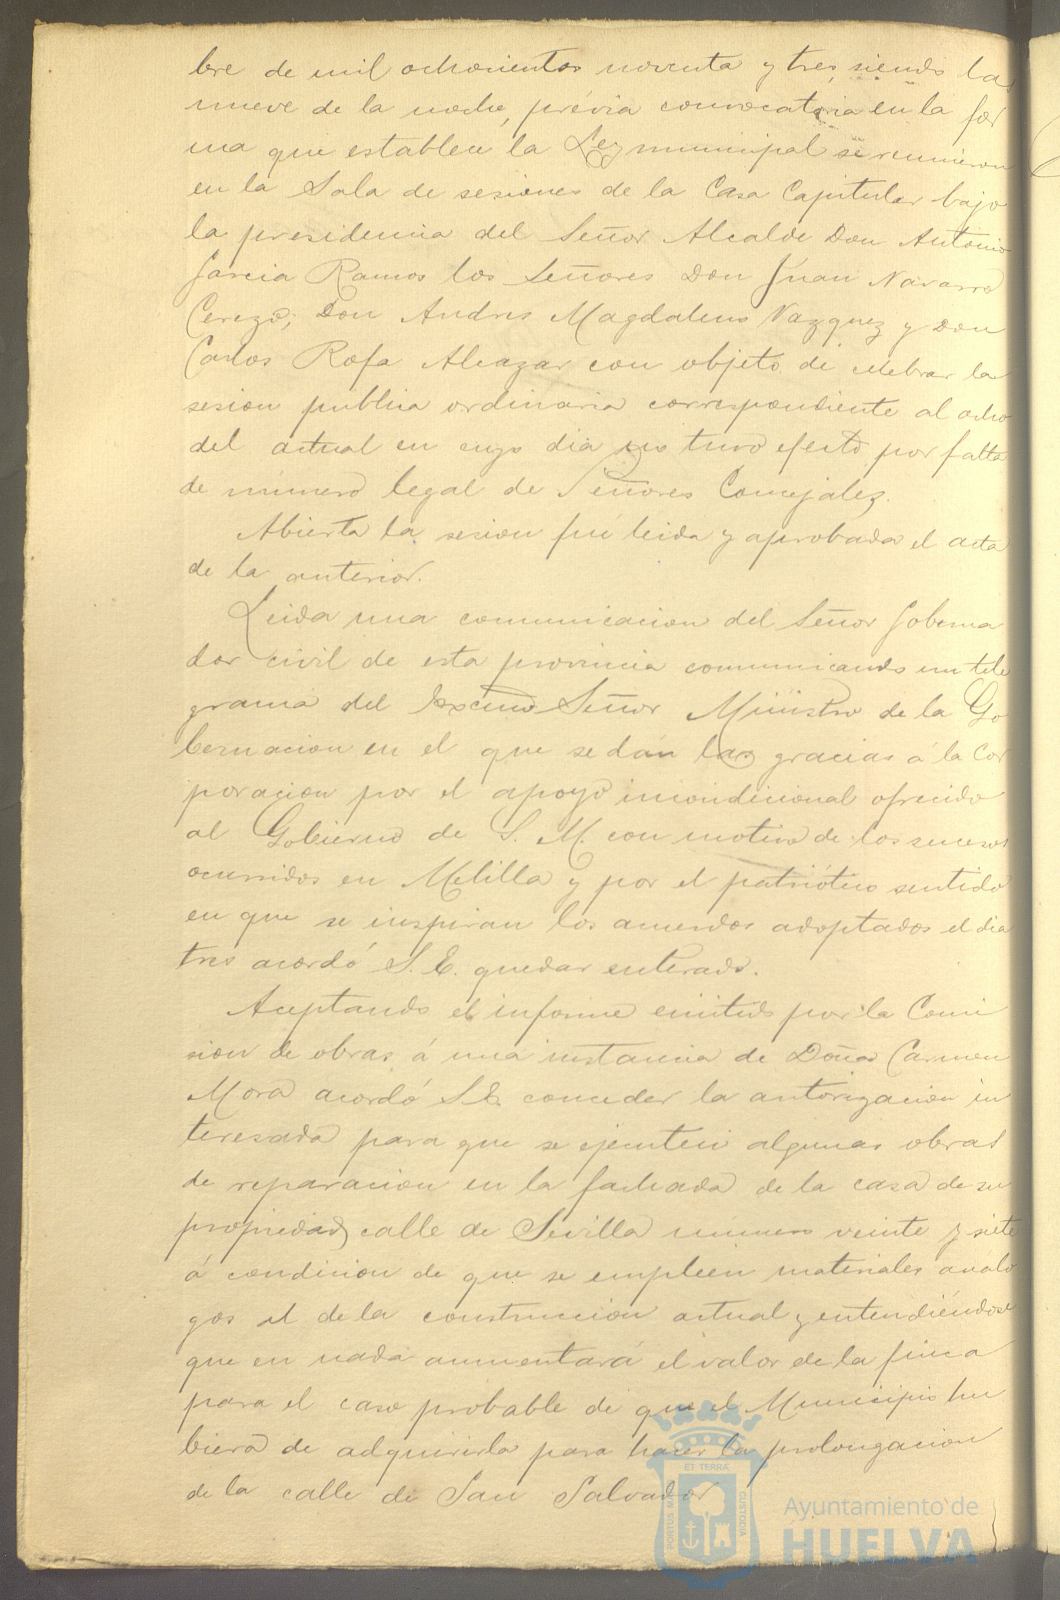 bre de mil ochocientos noventa y tres, siendo las
nueve de la noche, prévia convocatoria en la for
ma que establece la Ley municipal se reunieron
en la Sala de sesiones de la Casa Capitular bajo
la presidencia del Señor Alcalde Don Antonio
Garcia Ramos los Señores Don Juan Navarro
Cerezo, Don Andres Magdaleno Vazquez y Don
Carlos Rofa Alcazar con objeto de celebrar la
sesion publica ordinaria correspondiente al ocho
del actual en cuyo dia no tuvo efecto por falta
de número legal de Señores Concejalez.
Abierta la sesion fué leida y aprobada el acta
de la anterior.
Leida una comunicacion del Señor Goberna
dor civil de esta provincia comunicando un tele
grama del Excmo Señor Ministro de la Go
bernacion en el que se dán las gracias á la Cor
poracion por el apoyo incondicional ofrecido
al Gobierno de S. M. con motivo de los sucesos
ocurridos en Melilla y por el patriótico sentido
en que se inspiran los acuerdos adoptados el dia
tres acordó S. E. quedar enterado.
Aceptando el informe emitido por la Comi
sion de obras á una instancia de Doña Carmen
Mora acordó S.E. conceder la autorizacion in
teresada para que se ejecuten algunas obras
de reparacion en la fachada de la casa de su
propiedad calle de Sevilla numero veinte y siete
á condicion de que se empleen materiales análo
gos al de la construccion actual y entendiéndose
que en nada aumentará el valor de la finca
para el caso probable de que el Municipio hu
biera de adquirirla para hacer la prolongacion
de la calle de San Salvador
PORTUS MARIS ET TERRAE CUSTODIA
Ayuntamiento de
HUELVA